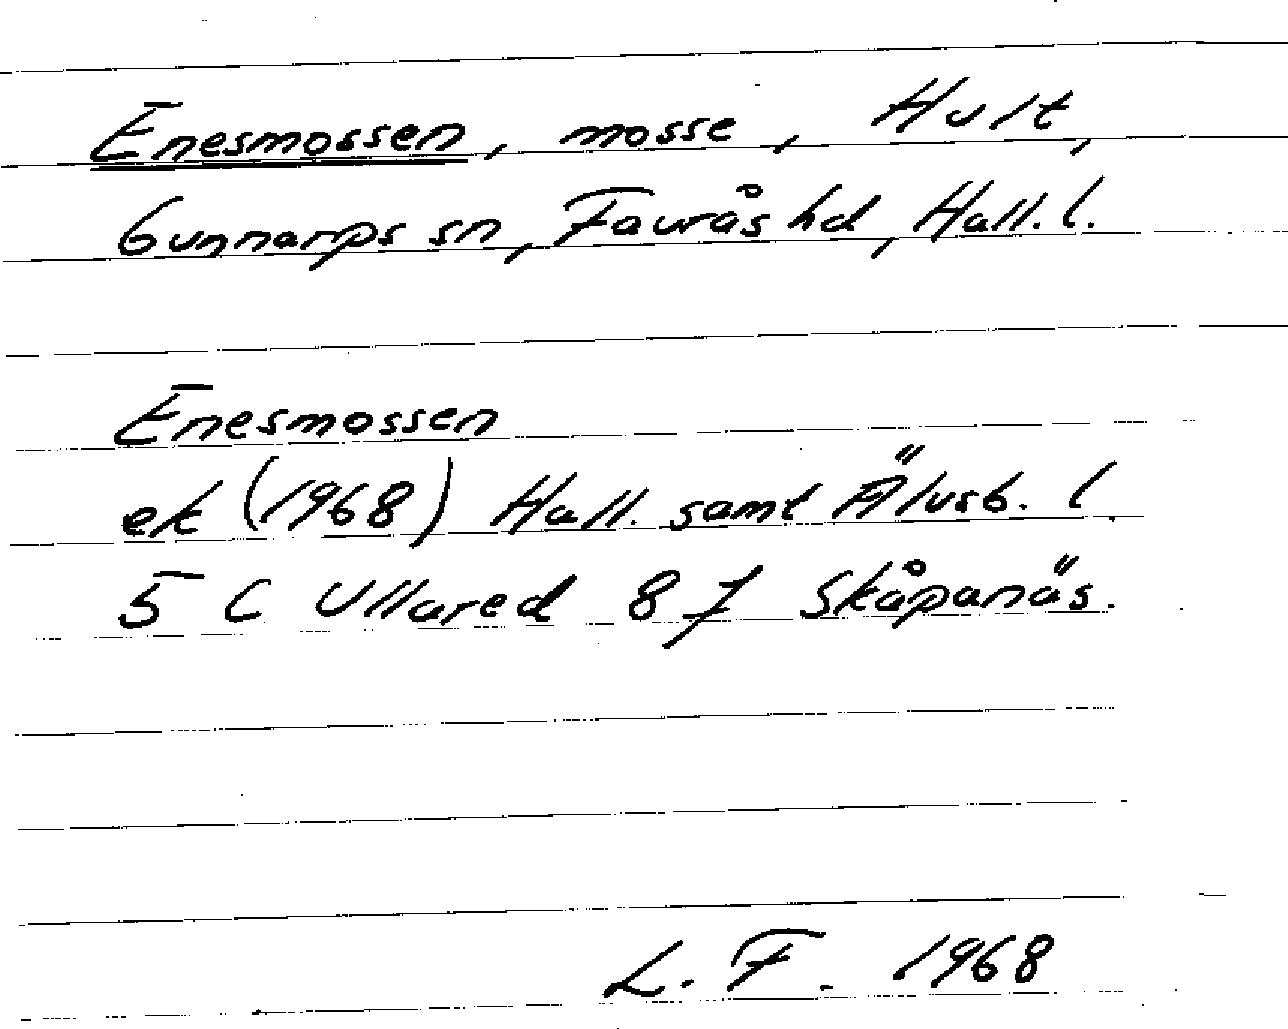 Enesmossen, mosse, Hult,
Gunnarps sn, Faurås hd, Hall. l.
Enesmossen
ek (1968) Hall. samt Älvsb. l.
5 C Ullared 8 f Skåpanäs.
L. F. 1968